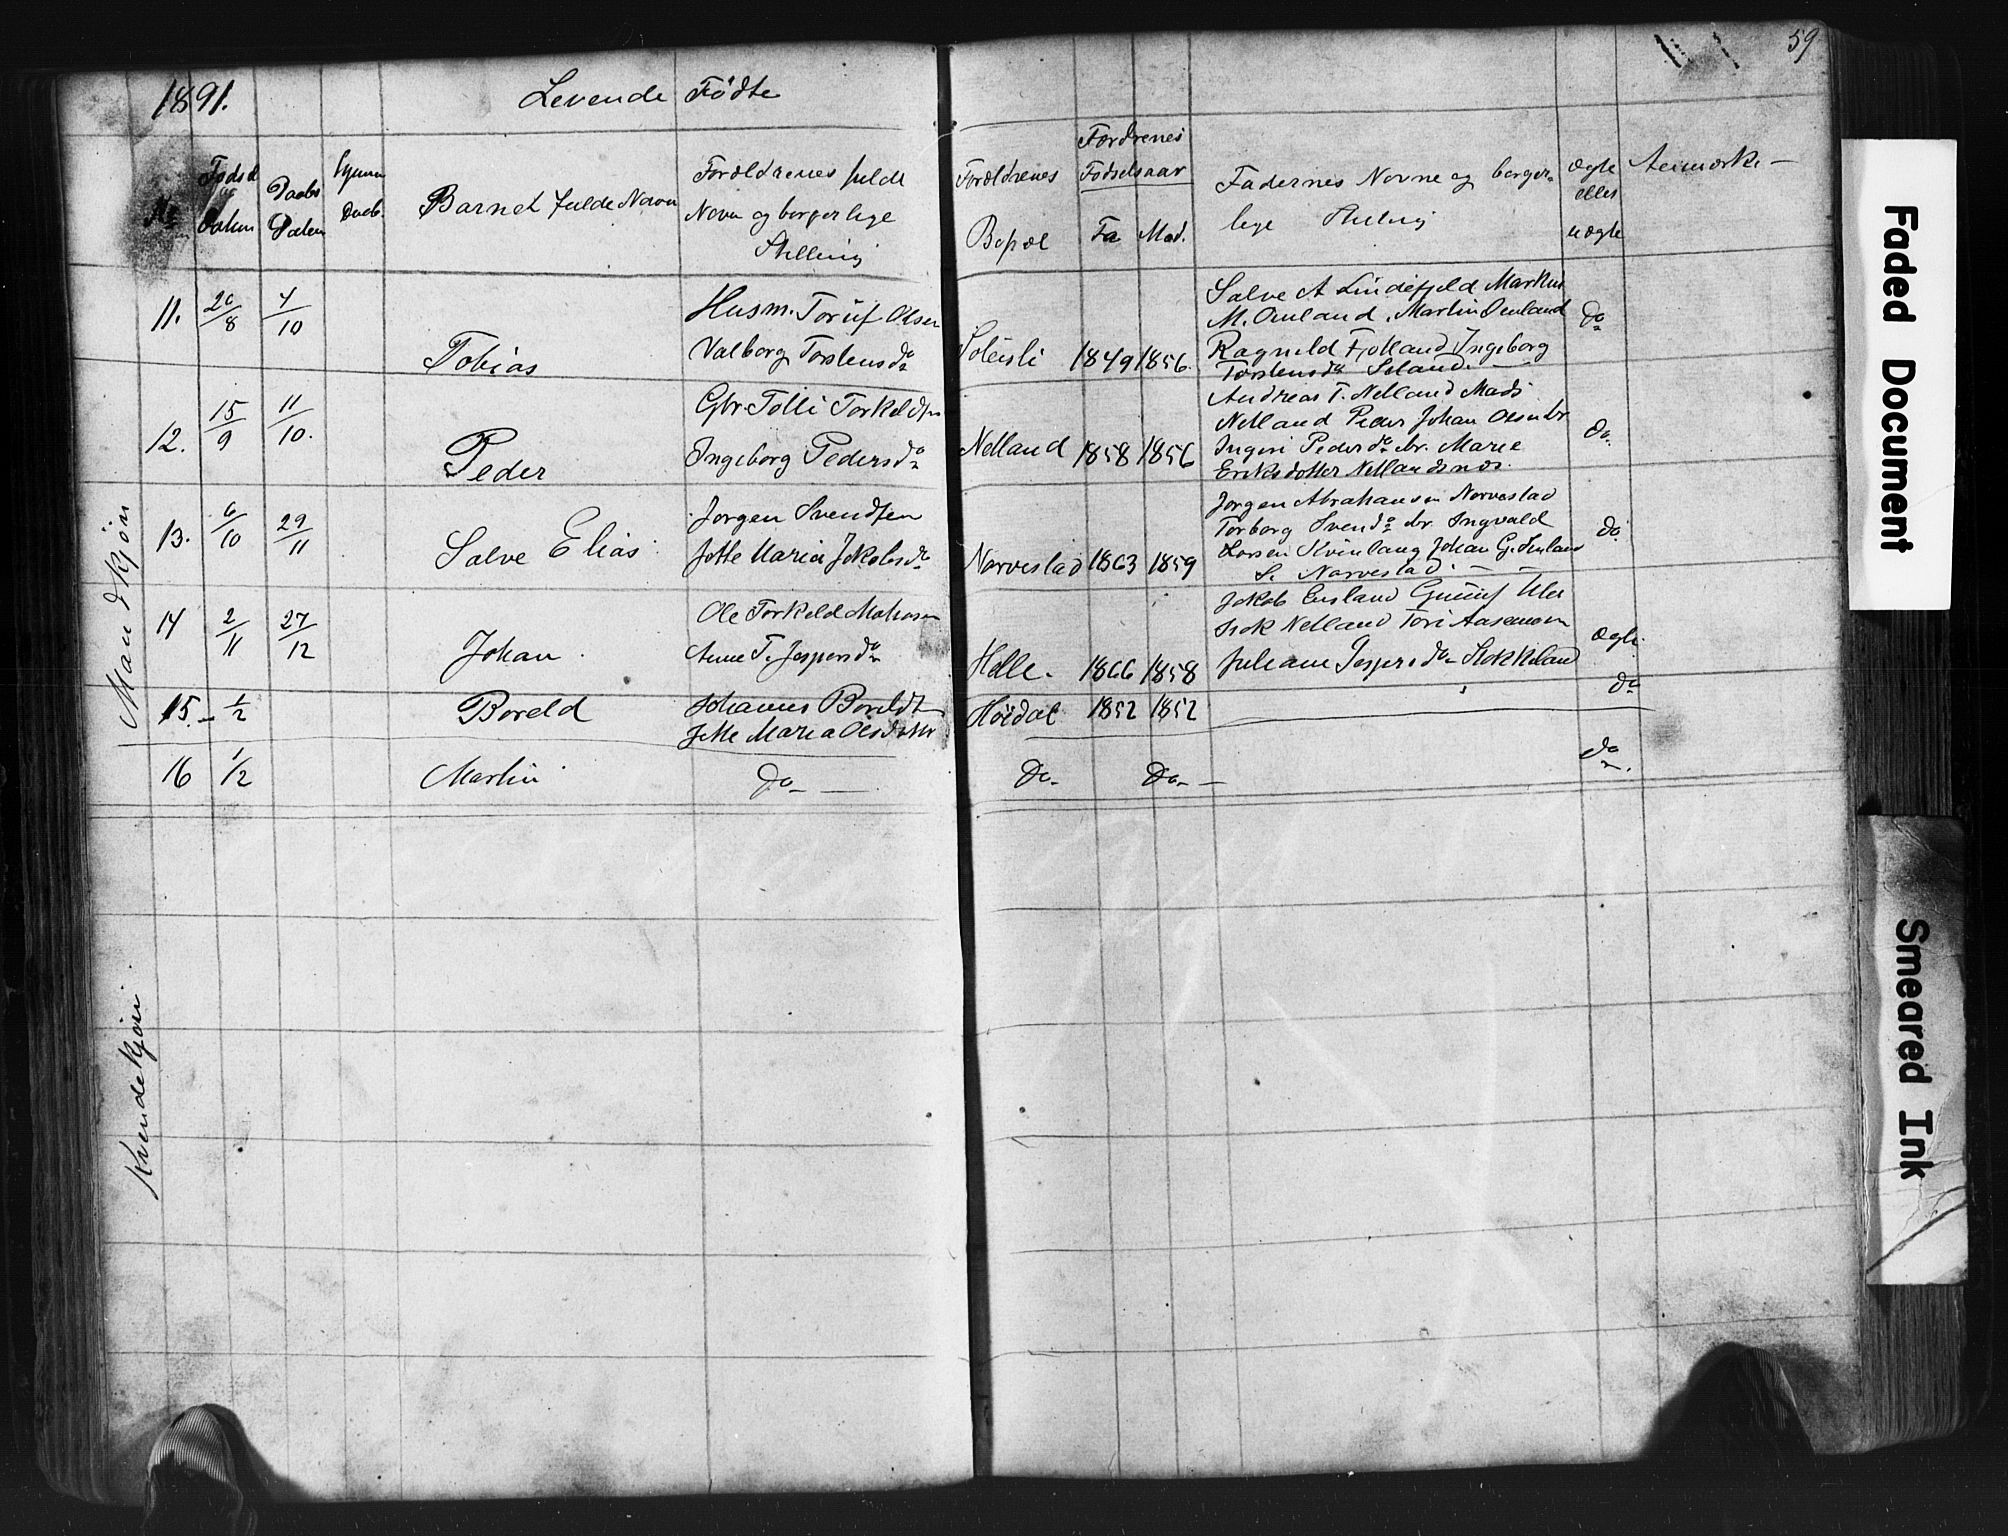 1891. Levende Fødte
59
No Fødsd Datum Daabs Datum Hjemme daab. Barnet fulde Navn Foreldrenes fulde Navn og borgerlige Stilling Foreldrenes Bopæl Fordrenes Fødselsaar Fa Mod. Fadernes Navne og borger- lige Stilling Ægte eller uægte Anmærk –
Mandkjøn
11. 20/8 4/10 Tobias
Husm. Torüf Olsen
Valborg Torstensda
Soleisli 1849 1856.
Salve A Lindefjeld Markus
M. Omland. Martin Omland
Ragnild Fjotland Ingeborg
Torstensda Seland. —
Do
12. 15/9 11/10. Peder
Gbr. Tolli Torkeldsen
Ingeborg Pedersda
Netland 1858 1856
Andreas T. Netland Mads
Netland Peder Johan Olsen br
Ingeri Pedersda br. Marie
Eriksdotter Netland
Do.
13. 6/10 29/11 Salve Elias
Jorgen Svendsen
Jette Maria Jakobsda
Narvestad 1863 1859
Jorgen Abrahamsen Narvestad
Torborg Svenda br. Ingvald
Larsen Kvinlaug Johan G.
S. Narvestad. — —
do.
14 2/11 27/12 Johan.
Ole Torkeld
Anne T. Jespersda
Helle. 1866 1858
Jakob Gunuf
Netland Tori
Juliane Jespersda Stokkeland
Ægte.
15. – 1/2 Boreld
Johannes Boreldt
Jette Maria Olsdatter
Høidal 1852 1852
do
16 1/2 Martin
Do – —
Do. Do. –
do.
Kvindekjøn
Faded Document
Smeared Ink